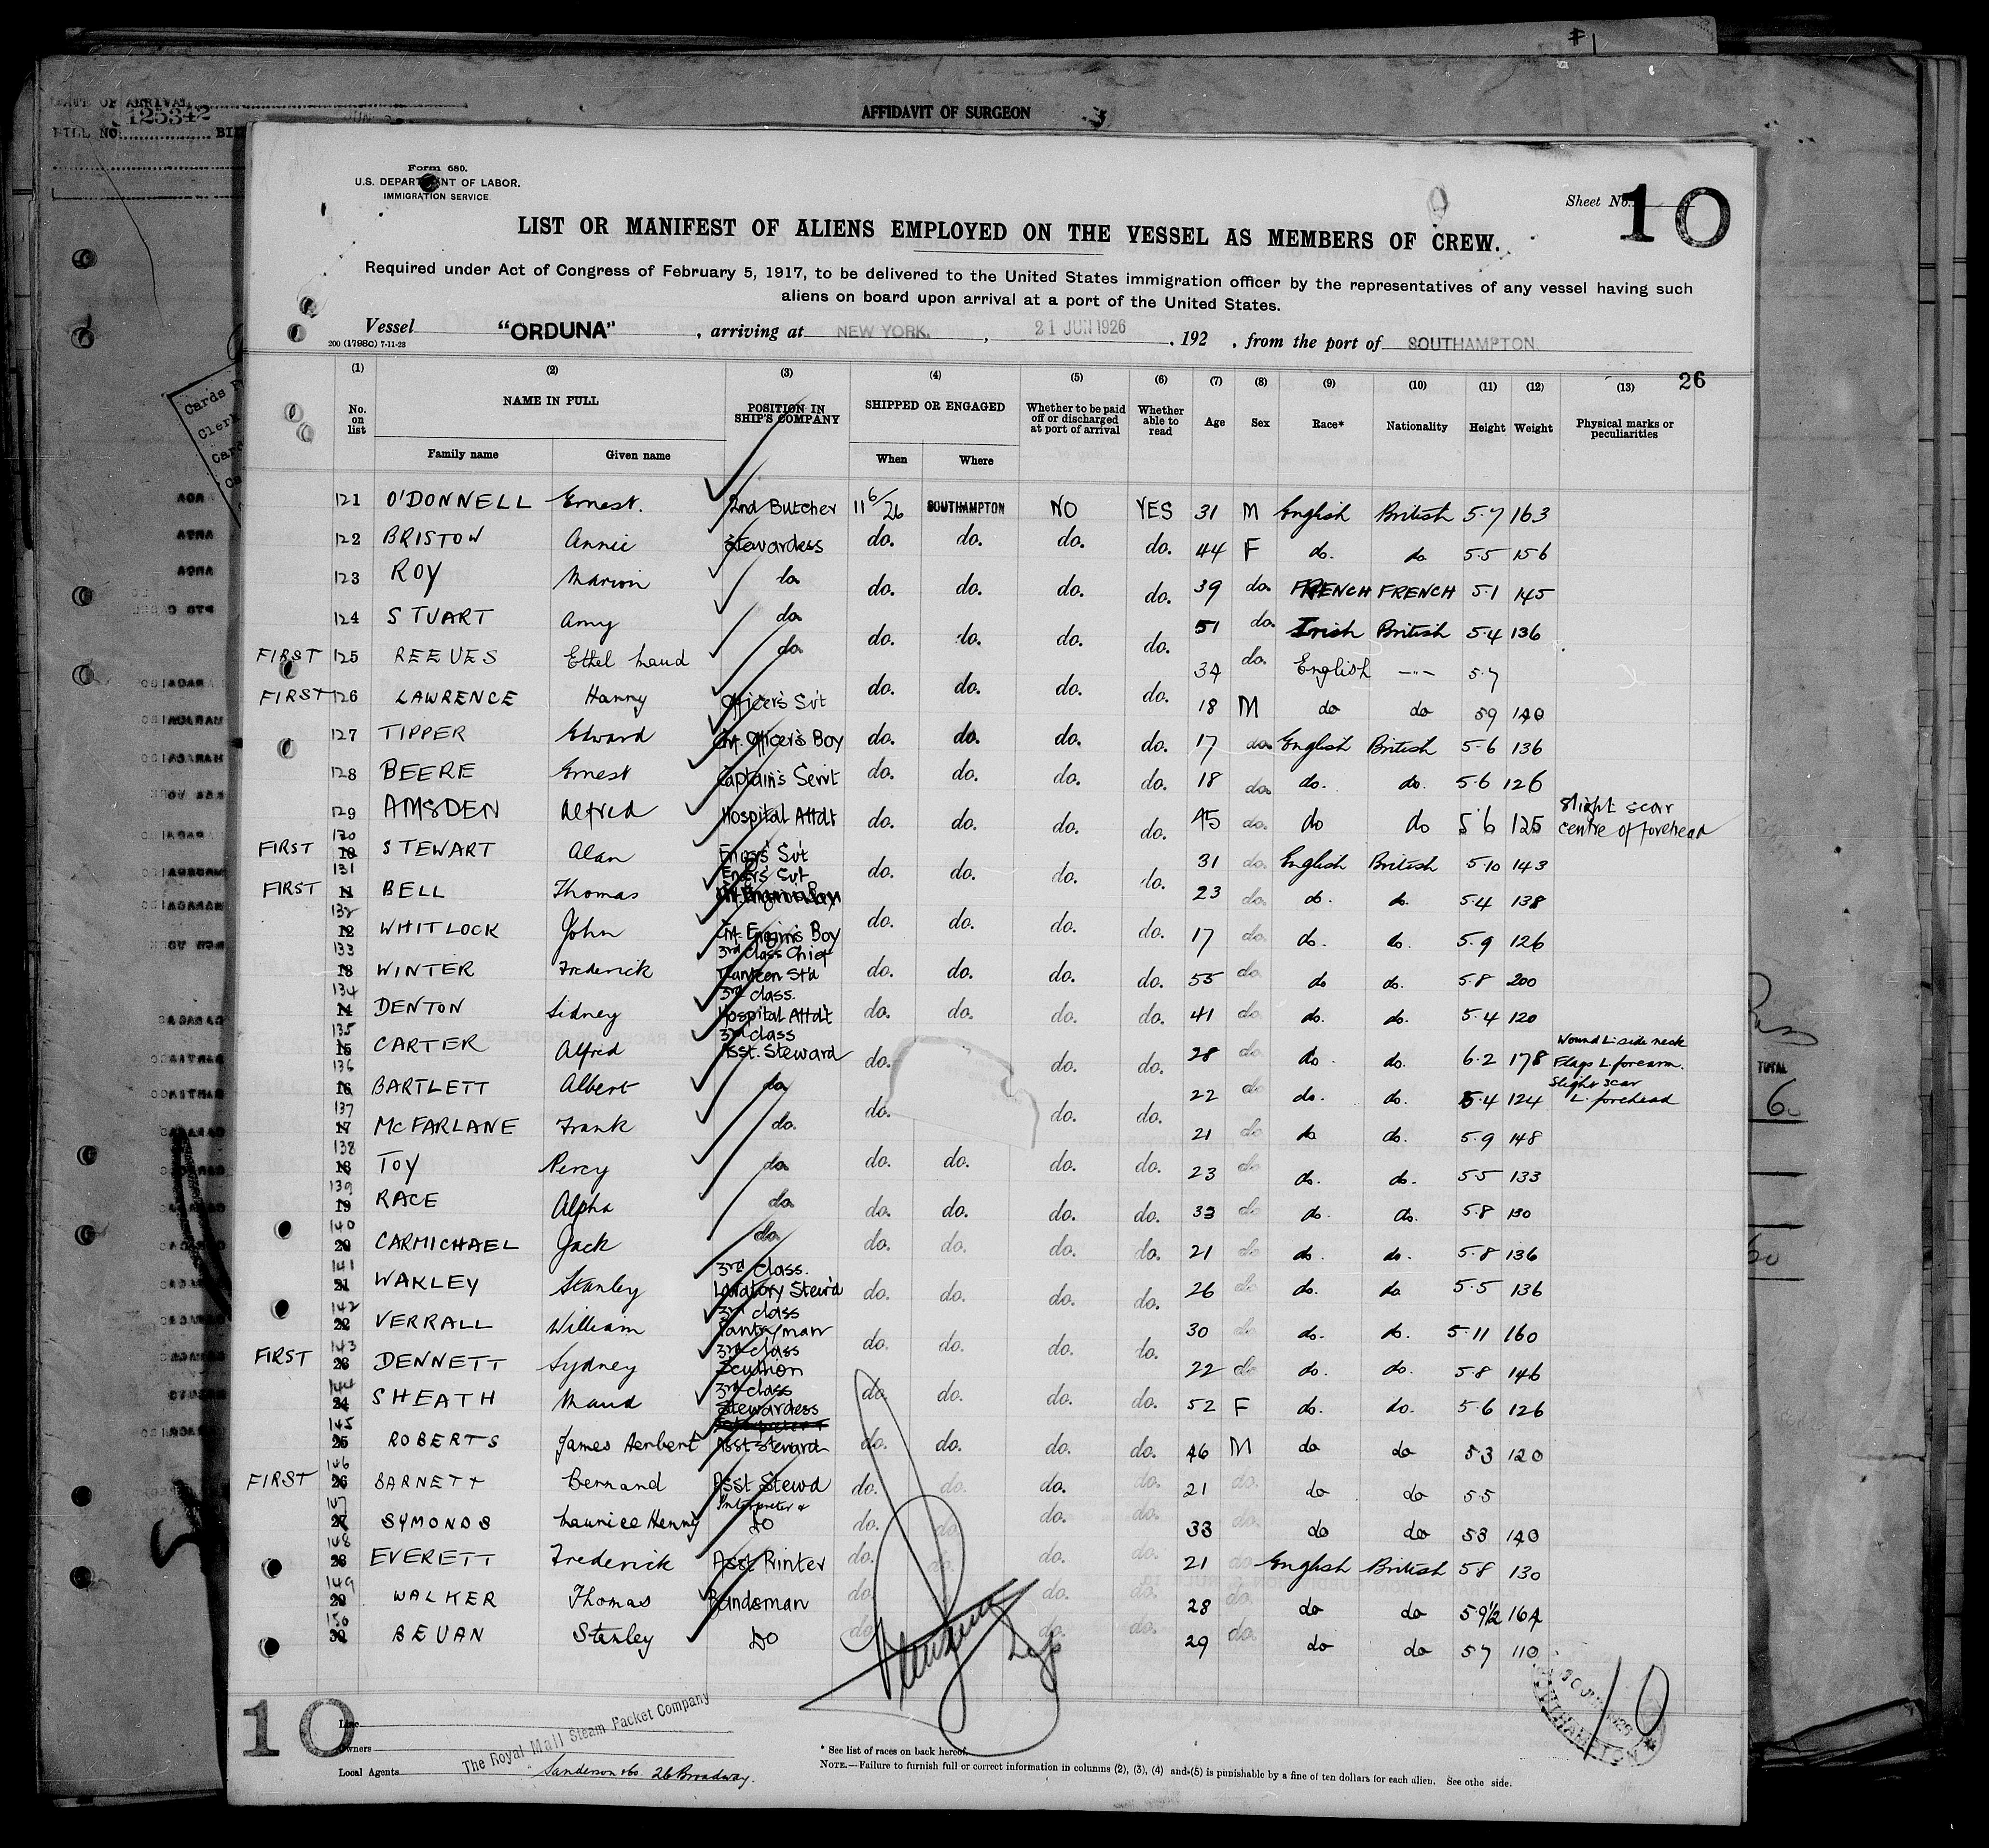 #1
DATE OF ARRIVAL
125342
BILL NO.
AFFIDAVIT OF SURGEON
Form 680.
U.S. DEPARTMENT OF LABOR.
IMMIGRATION SERVICE
Sheet No. 10
LIST OR MANIFEST OF ALIENS EMPLOYED ON THE VESSEL AS MEMBERS OF CREW.
Required under Act of Congress of February 5, 1917, to be delivered to the United States immigration officer by the representatives of any vessel having such
aliens on board upon arrival at a port of the United States.
Vessel "ORDUNA", arriving at NEW YORK, 21 JUN 1926, 192 , from the port of SOUTHAMPTON
200 (1798c) 7-11-23
(1) (2) (3) (4) (5) (6) (7) (8) (9) (10) (11) (12) (13) 26
No. on list NAME IN FULL POSITION IN SHIP'S COMPANY SHIPPED OR ENGAGED Whether to be paid off or discharged at port of arrival Whether able to read Age Sex Race* Nationality Height Weight Physical marks or peculiarities
Family name Given name When Where
121 O'DONNELL Ernest. 2nd Butcher 11 6/26 SOUTHAMPTON NO YES 31 M English British 5.7 163
122 BRISTOW Annie Stewardess do. do. do. do. 44 F do. do 5.5 156
123 ROY Marion do do. do. do. do. 39 do. FRENCH FRENCH 5.1 145
124 STUART Amy do do. do. do. do. 51 do. Irish British 5.4 136
FIRST 125 REEVES Ethel Maud do do. do. do. do. 34 do. English -"- 5.7
FIRST 126 LAWRENCE Harry Officer's Svt do. do. do. do. 18 M do do 59 140
127 TIPPER Edward Off. Officer's Boy do. do. do. do. 17 do English British 5.6 136
128 BEERE Ernest Captain's Servt do. do. do. do. 18 do. do. do. 5.6 126
129 AMSDEN Alfred Hospital Attdt do. do. do. do. 45 do. do do 5'6 125 Slight scar centre of forehead
FIRST 130 STEWART Alan Engrs' Svt do. do. do. do. 31 do. English British 5.10 143
FIRST 131 11 BELL Thomas Engrs Svt do. do. do. do. 23 do. do. do. 5.4 138
132 12 WHITLOCK John Boy do. do. do. do. 17 do. do. do. 5.9 126
133 13 WINTER Frederick 3rd Class Chief Canteen Std do. do. do. do. 55 do do do. 5.8 200
134 14 DENTON Sidney 3rd class. Hospital Attdt do. do. do. do. 41 do. do. do. 5.4 120
135 15 CARTER Alfred 3rd class Asst. Steward do. do. do. 28 do do. do. 6.2 178 Wound L. side neck Flags L forearm.
136 16 BARTLETT Albert do do. do. do. 22 do do. do. 5.4 124 Slight scar L. forehead
137 17 McFARLANE Frank do. 21 do do do. 5.9 148
138 18 TOY Percy do do. do. do. do. 23 do do. do. 5.5 133
139 19 RACE Alpha do do. do. do. do. 33 do do. do. 5.8 130
140 20 CARMICHAEL Jack do do. do. do. do. 21 do do. do. 5.8 136
141 21 WAKLEY Stanley 3rd class. Lavatory Stew'd do. do. do. do. 26 do do. do 5.5 136
142 22 VERRALL William 3rd class Pantryman do. do. do. do. 30 do do. do. 5.11 160
FIRST 143 23 DENNETT Sydney 3rd class Scullion do. do. do. do. 22 do do. do. 5.8 146
144 24 SHEATH Maud 3rd class Stewardess do. do. do. do. 52 F do. do. 5.6 126
145 25 ROBERTS James Herbert Asst Steward do. do. do. do. 46 M do do 5.3 120
FIRST 146 26 BARNETT Bernard Asst Stewd do. do. do. do. 21 do. do do 55
147 27 SYMONDS Maurice Henry Interpreter & do do. do. do. do. 33 do. do do 53 140
148 28 EVERETT Frederick Asst Printer do. do. do. do. 21 do English British 58 130
149 29 WALKER Thomas Bandsman do. do. do. 28 do. do do 5.9½ 164
150 30 BEVAN Stanley Do do. do. do. 29 do. do do 57 110
10
Line
Owners The Royal Mail Steam Packet Company
Local Agents Sanderson & Co. 26 Broadway.
* See list of races on back hereof.
NOTE.—Failure to furnish full or correct information in columns (2), (3), (4) and (5) is punishable by a fine of ten dollars for each alien. See othe side.
SOUTHAMPTON
10
TOTAL